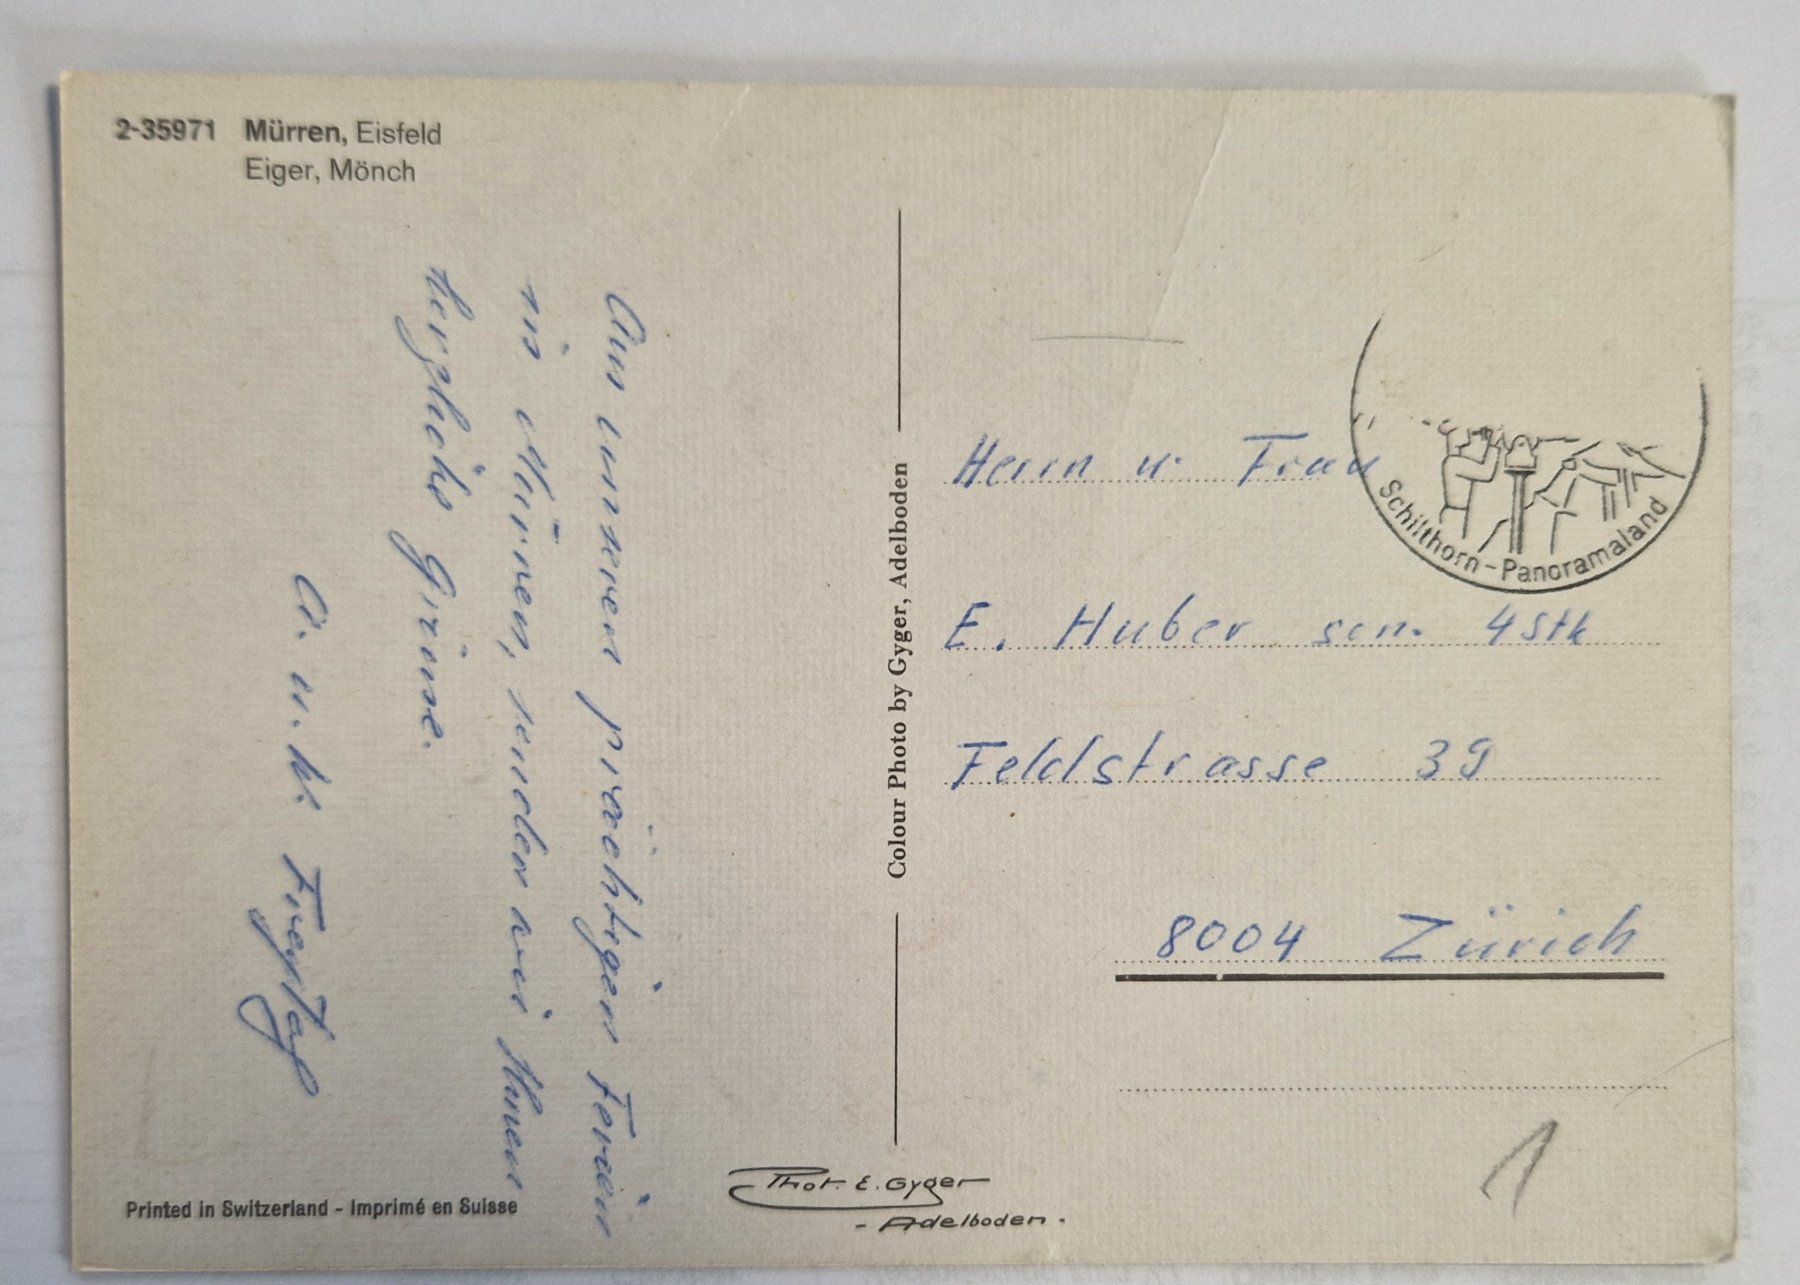 2-35971 Mürren, Eisfeld
Eiger, Mönch
Aus unseren prächtigen Ferien
in Mürren, senden wir Ihnen
herzlichs Grüsse.
A. u. K. Freytag
Printed in Switzerland - Imprimé en Suisse
Colour Photo by Gyger, Adelboden
Phot. E. Gyger
- Adelboden.
Schilthorn-Panoramaland
Herrn u. Frau
E. Huber sen. 4 Stk
Feldstrasse 39
8004 Zürich
1